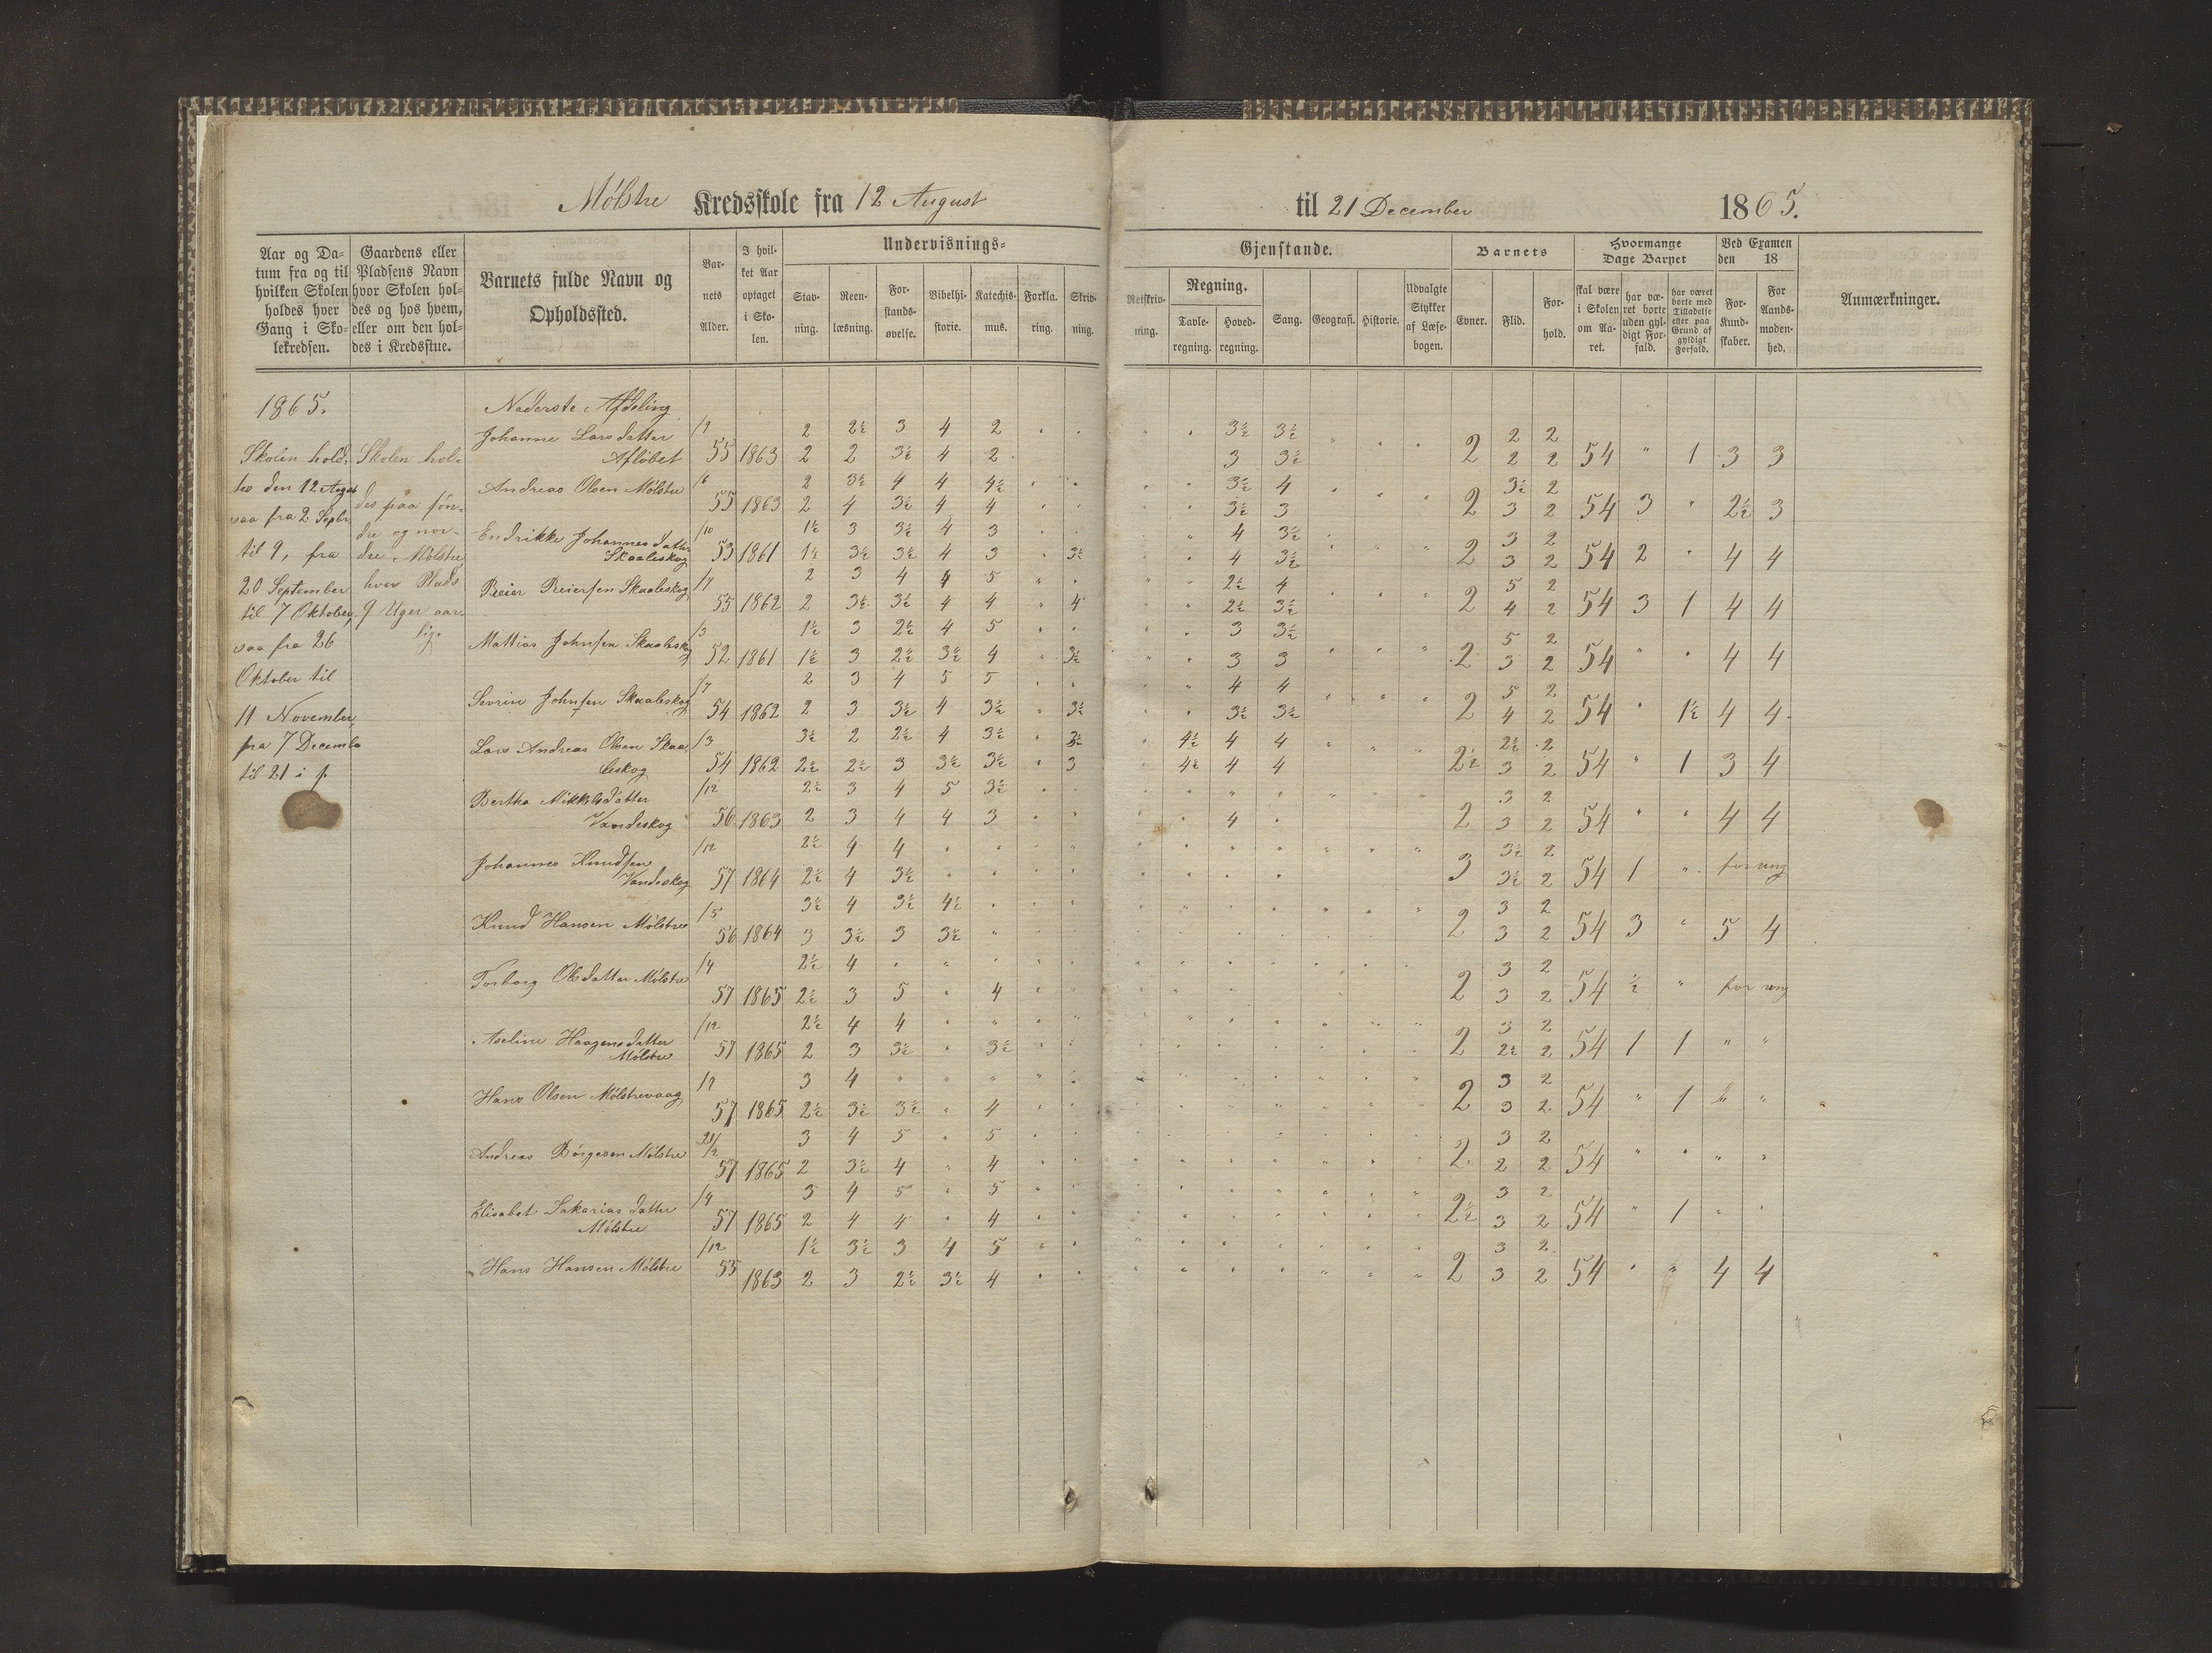 Mølstre Kredsskole fra 12 August til 21 December 1865.
Aar og Da-
tum fra og til
hvilken Skolen
holdes hver
Gang i Sko-
lekredsen.
Gaardens eller
Pladsens Navn
hvor Skolen hol-
des og hos hvem,
eller om den hol-
des i Kredsstue.
Barnets fulde Navn og
Opholdssted.
Bar-
nets
Alder.
I hvil-
ket Aar
optaget
i Sko-
len.
Undervisnings-
Stav-
ning.
Reen-
læsning.
For-
stands-
øvelse.
Bibelhi-
storie.
Katechis-
mus.
Forkla-
ring.
Skriv-
ning.
Gjenstande.
Retskriv-
ning.
Regning.
Tavle-
regning.
Hoved-
regning.
Sang.
Geografi.
Historie.
Udvalgte
Stykker
af Læse-
bogen.
Barnets
Evner.
Flid.
For-
hold.
Hvormange
Dage Barnet
skal være
i Skolen
om Aa-
ret.
har væ-
ret borte
uden gyl-
digt For-
fald.
har været
borte med
Tilladelse
eller paa
Grund af
gyldigt
Forfald.
Ved Examen
den 18
For-
Kund-
skaber.
For
Aands-
moden-
hed.
Anmærkninger.
1865.
Skolen hold-
tes den 12 August
saa fra 2 Septbr
til 9, fra
20 September
til 7 Oktober,
saa fra 26
Oktober til
11 November,
fra 7 Decembr
til 21 i
Skolen hol-
des paa søn-
dre og nor-
dre Mølstre
hver Plads
9 Uger aar-
lig.
Nederste Afdeling
Johanne Larsdatter /9 2 2½ 3 4 2 3½ 3½ 2 2
Afløbet 55 1863 2 2 3½ 4 2 3 3½ 2 2 2 54 " 1 3 3
Andreas Olsen Mølstre /6 2 3½ 4 4 4½ 3½ 4 3½ 2
55 1863 2 4 3½ 4 4 3½ 3 2 3 2 54 3 " 2½ 3
Endrikke Johannesdatter /10 1½ 3 3½ 4 3 4 3½ 3 2
Skaaleskog 53 1861 1½ 3½ 3½ 4 3 3½ 4 3½ 2 3 2 54 2 " 4 4
Reier Reiersen Skaaleskog /7 2 3 4 4 5 2½ 4 5 2
55 1862 2 3½ 3½ 4 4 4 2½ 3½ 2 4 2 54 3 1 4 4
Mattias Johnsen Skaaleskog /3 1½ 3 2½ 4 5 3 3½ 5 2
52 1861 1½ 3 2½ 3½ 4 3½ 3 3 2 3 2 54 " " 4 4
Sevrin Johnsen Skaaleskog /7 2 3 4 5 5 4 4 5 2
54 1862 2 3 3½ 4 3½ 3½ 3½ 3½ 2 4 2 54 " 1½ 4 4
Lars Andreas Olsen Skaa- /3 3½ 2 2½ 4 3½ 3½ 4½ 4 4 2½ 2
leskog 54 1862 2½ 2½ 3 3½ 3½ 3 4½ 4 4 2½ 3 2 54 " 1 3 4
Bertha Mikkelsdatter /12 2½ 3 4 5 3½ 3 2
Vandeskog 56 1863 2 3 4 4 3 4 2 3 2 54 " " 4 4
Johannes Knudsen /12 2½ 4 4 3½ 2
Vandeskog 57 1864 2½ 4 3½ 3 3½ 2 54 1 " for ung
Knud Hansen Mølstre /5 3½ 4 3½ 4½ 3 2
56 1864 3 3½ 3 3½ 2 3 2 54 3 " 5 4
Torborg Olsdatter Mølstre /4 2½ 4 3 2
57 1865 2½ 3 5 4 2 3 2 54 ½ " for ung
Aseline Haagensdatter /12 2½ 4 4 3 2
Mølstre 57 1865 2 3 3½ 3½ 2 2½ 2 54 1 1 " "
Hans Olsen Mølstrevaag /9 3 4 3 2
57 1865 2½ 3½ 3½ 4 2 3 2 54 " 1 " "
Andreas Børgesen Mølstre 21/2 3 4 5 5 3 2
57 1865 2 3½ 4 4 2 2 2 54 " " " "
Elisabet Sakariasdatter /4 3 4 5 5 3 2
Mølstre 57 1865 2 4 4 4 2½ 3 2 54 " 1 " "
Hans Hansen Mølstre /12 1½ 3½ 3 4 5 3 2
55 1863 2 3 2½ 3½ 4 2 3 2 54 " " 4 4